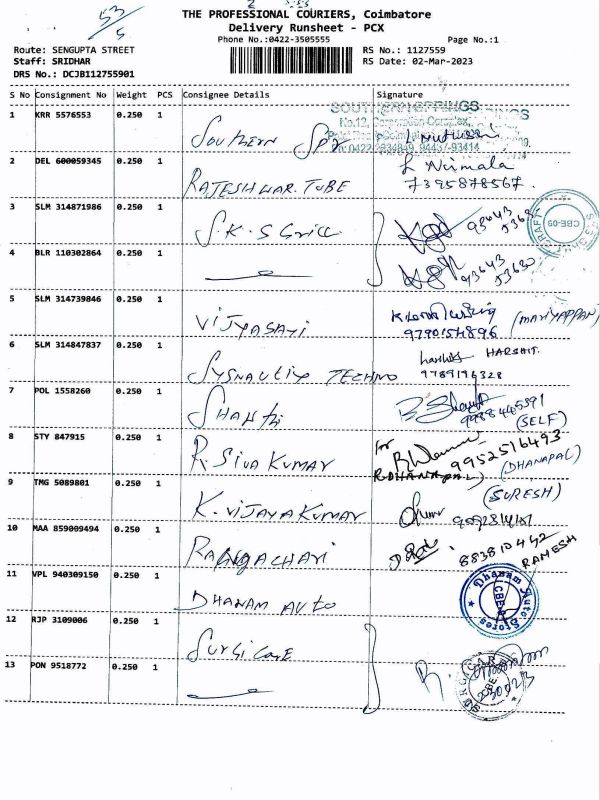 53/5
THE PROFESSIONAL COURIERS, Coimbatore
Delivery Runsheet - PCX
Phone No.:0422-3505555
Page No.:1
Route: SENGUPTA STREET
RS No.: 1127559
Staff: SRIDHAR
RS Date: 02-Mar-2023
DRS No.: DCJB112755901
S No Consignment No Weight PCS Consignee Details Signature
SOUTHERN SPRINGS
1 KRR 5576553 0.250 1 Southern Spr
No.12, Corporation Complex,
2 DEL 600059345 0.250 1 RAJESHWAR TUBE L Nirmala
7395878567.
3 SLM 314871986 0.250 1 S.K.S Grill 93643
4 BLR 110302864 0.250 1 93643
53630
CBE-09
5 SLM 314739846 0.250 1 VIJYASAYI (MARIYAPPAN)
9790154896
6 SLM 314847837 0.250 1 TECHNO HARSHIT.
9789196328
7 POL 1558260 0.250 1 SHANTHI
(SELF)
8 STY 847915 0.250 1 R. SIVA KUMAR for 9952516493
(DHANAPAL)
9 TMG 5089801 0.250 1 K. VIJAYA KUMAR (SURESH)
10 MAA 859009494 0.250 1 883810442
RAMESH
11 VPL 940309150 0.250 1 DHANAM AUTO Dhanam Auto Stores
12 RJP 3109006 0.250 1 Surgi Care
13 PON 9518772 0.250 1